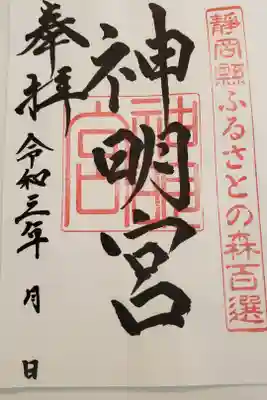 靜岡縣ふるさとの森百選
神明宮
奉拝
令和三年 月 日